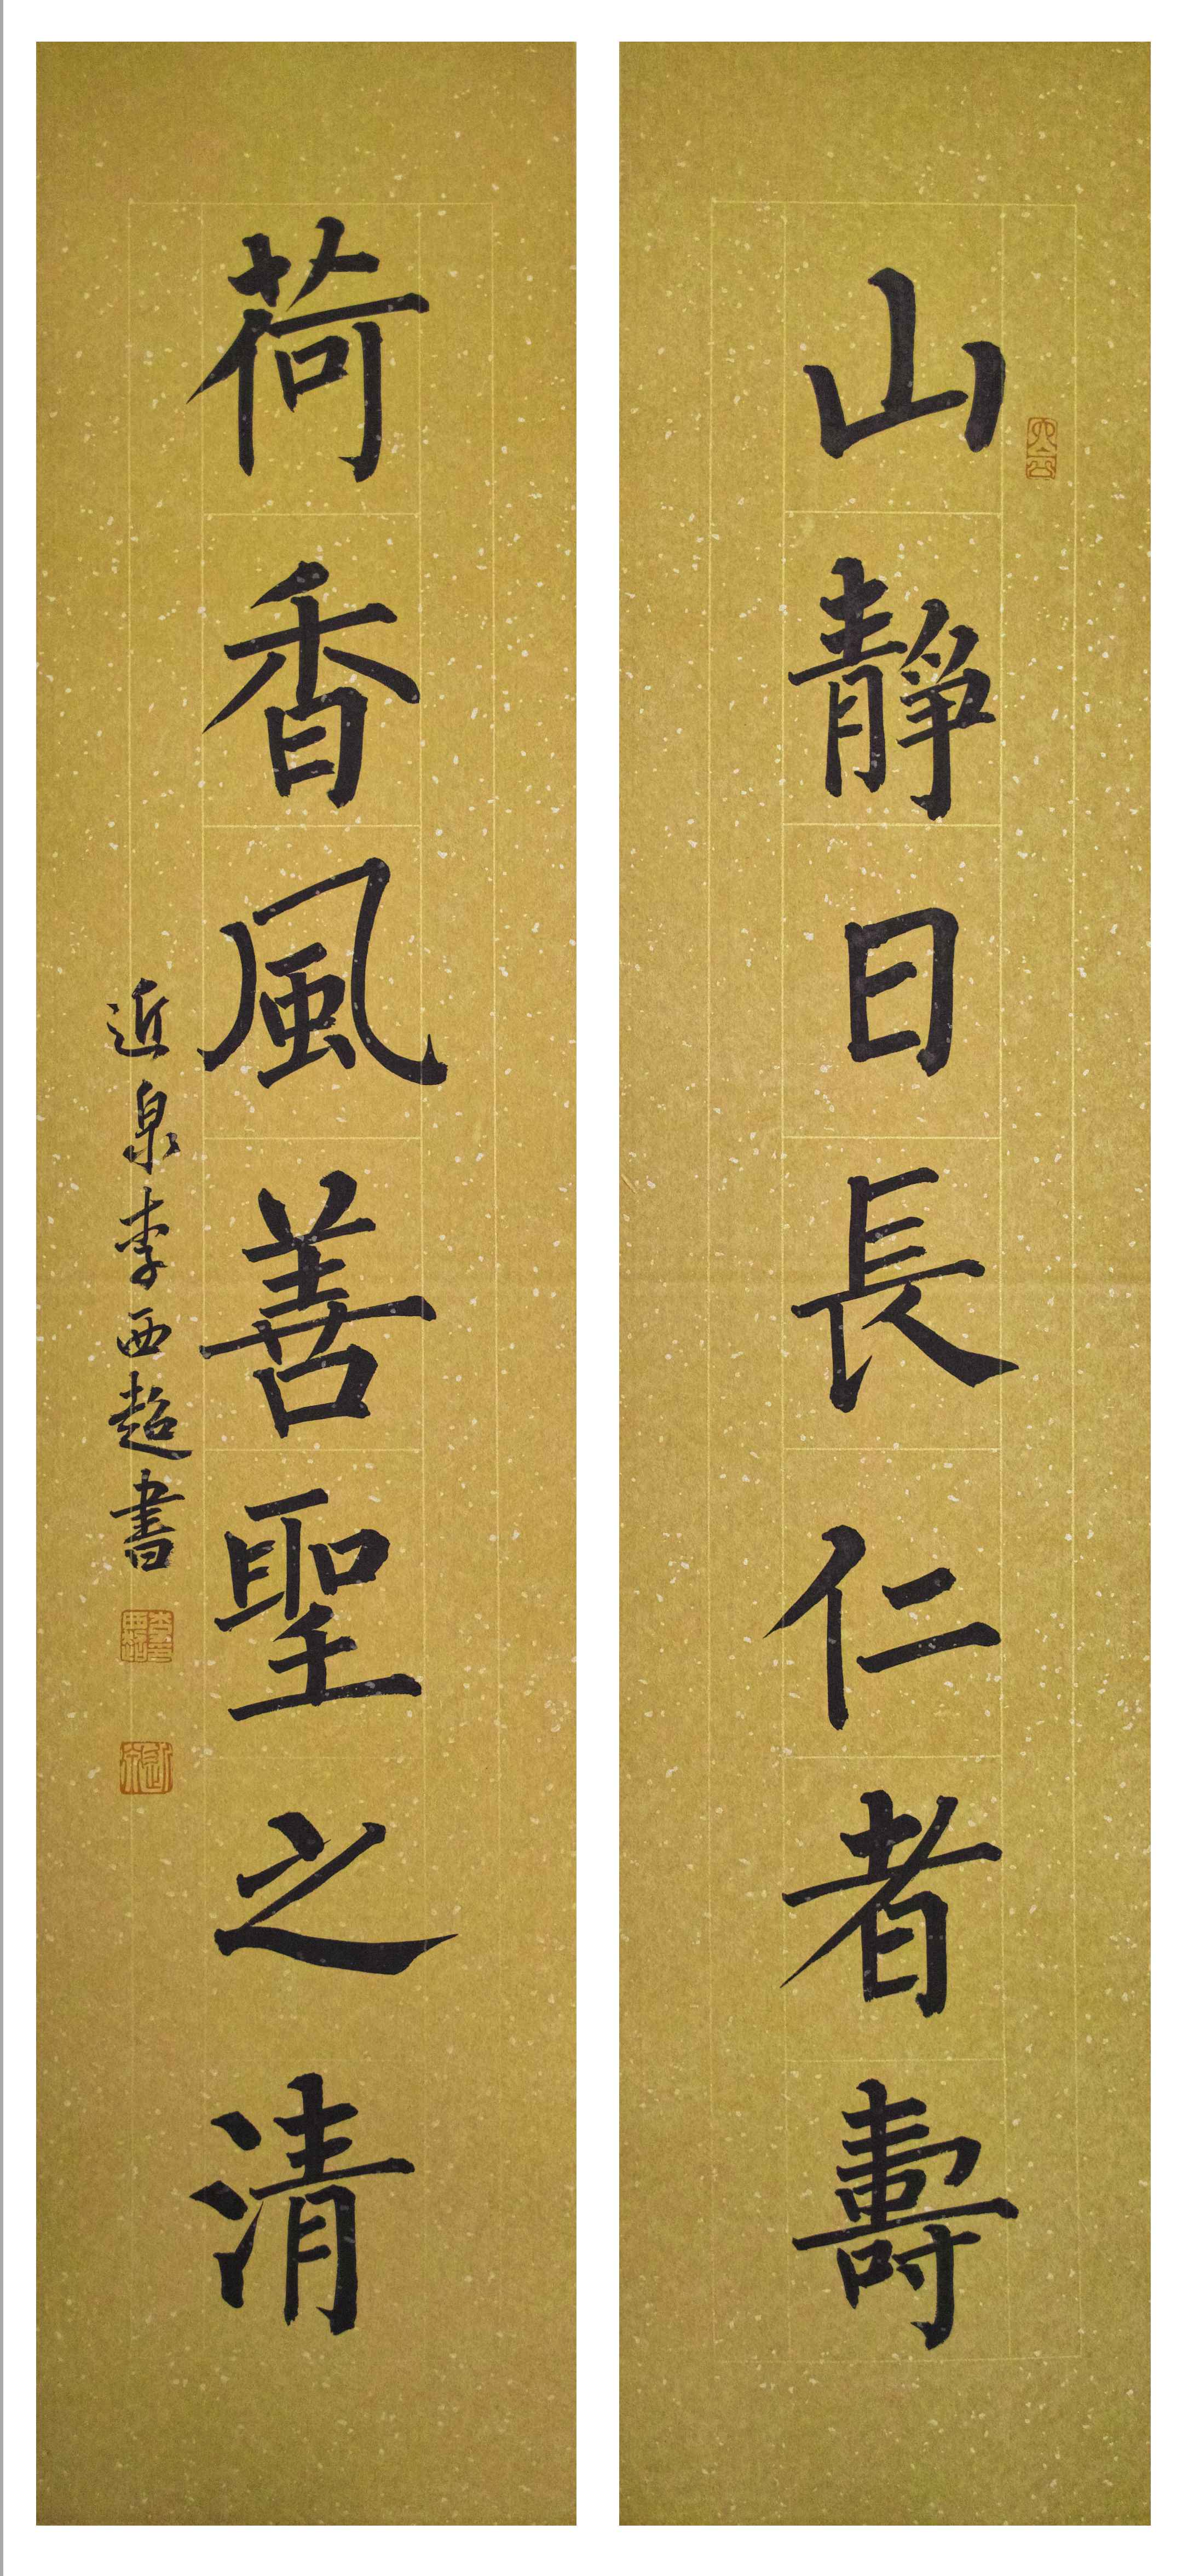 山靜日長仁者壽
荷香風善聖之清
近泉李西超書